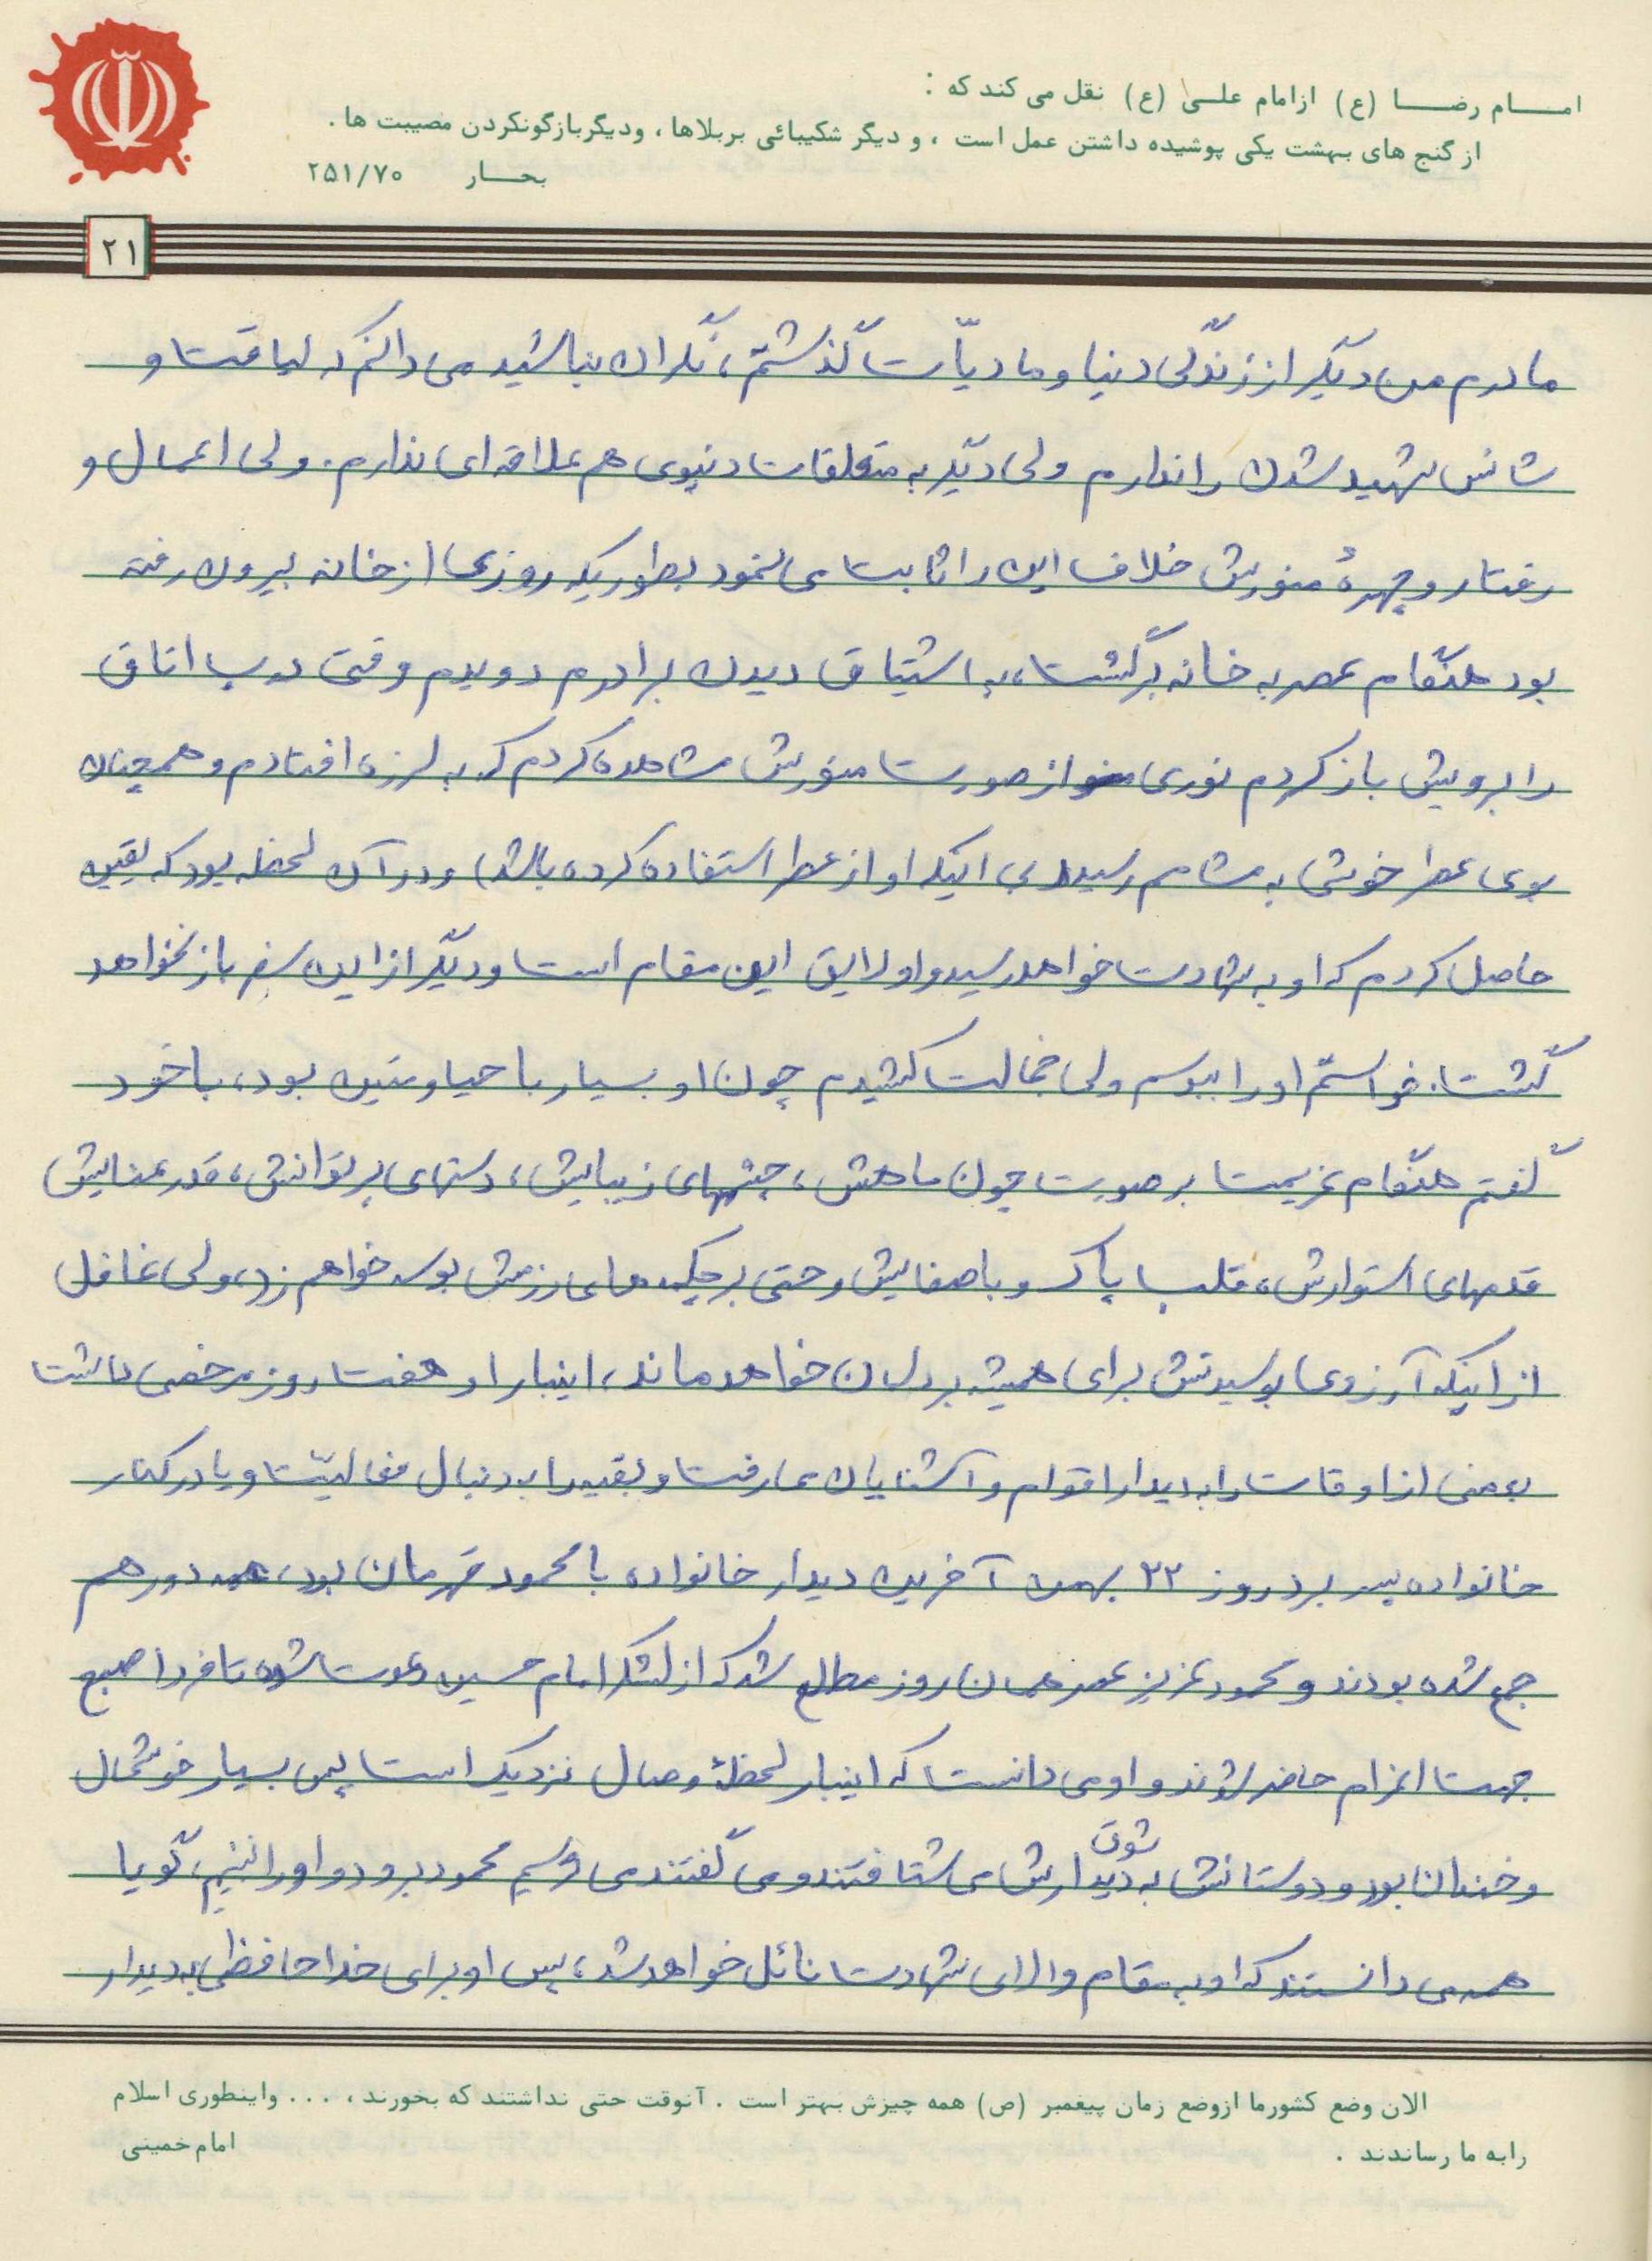 امـــام رضـــا (ع) ازامام علـی (ع) نقل می کند که :
از گنج های بهشت یکی پوشیده داشتن عمل است ، و دیگر شکیبائی بربلاها ، ودیگربازگونکردن مصیبت ها .
بحـــار ۲۵۱/۷۰
۲۱
مادرم من دیگر از زندگی دنیا و مادیّات گذشتم ، نگران نباشید می دانم که لیاقت و
شانس شهید شدن را ندارم ولی دیگر به متعلقات دنیوی هم علاقه ای ندارم . ولی اعمال و
رفتار و چهرهٔ منورش خلاف این را ثابت می نمود بطوریکه روزی از خانه بیرون رفته
بود هنگام عصر به خانه برگشت ، به اشتیاق دیدن برادرم دویدم وقتی درب اتاق
را برویش باز کردم نوری از صورت منورش مشاهده کردم که به لرزه افتادم و همچنان
بوی عطر خوشی به مشامم رسید (بی اینکه او از عطر استفاده کرده باشد) و در آن لحظه بود که یقین
حاصل کردم که او به شهادت خواهد رسید و او لایق این مقام است و دیگر از این سفر باز نخواهد
گشت . خواستم او را ببوسم ولی خجالت کشیدم چون او بسیار با حیا و متین بود ، با خود
گفتم هنگام عزیمت بر صورت چون ماهش ، چشمهای زیبایش ، دستهای پر توانش ، قدرعنایش
قدمهای استوارش ، قلب پاک و باصفایش و حتی بر چکمه های رزمش بوسه خواهم زد ، ولی غافل
از اینکه آرزوی بوسیدنش برای همیشه بر دلمان خواهد ماند ، اینبار او هفت روز مرخصی داشت
بعضی از اوقات را به دیدار اقوام و آشنایان می رفت و بقیه را به دنبال فعالیّت و یا در کنار
خانواده بسر برد روز ۲۲ بهمن آخرین دیدار خانواده با محمود قهرمان بود ، همه دور هم
جمع شده بودند و محمود عزیز عصر همان روز مطلع شد که از لشکر امام حسین دعوت شده تا فردا صبح
جهت اعزام حاضر شوند و او می دانست که اینبار لحظهٔ وصال نزدیک است پس بسیار خوشحال
و خندان بود و دوستانش به شوق دیدارش می شتافتند و می گفتند می ترسیم محمود برود و او را نبینیم ، گویا
همه می دانستند که او به مقام والای شهادت نائل خواهد شد ، پس او برای خداحافظی به دیدار
الان وضع کشورما ازوضع زمان پیغمبر (ص) همه چیزش بهتر است . آنوقت حتی نداشتند که بخورند ، . . . واینطوری اسلام
رابه ما رساندند . امام خمینی